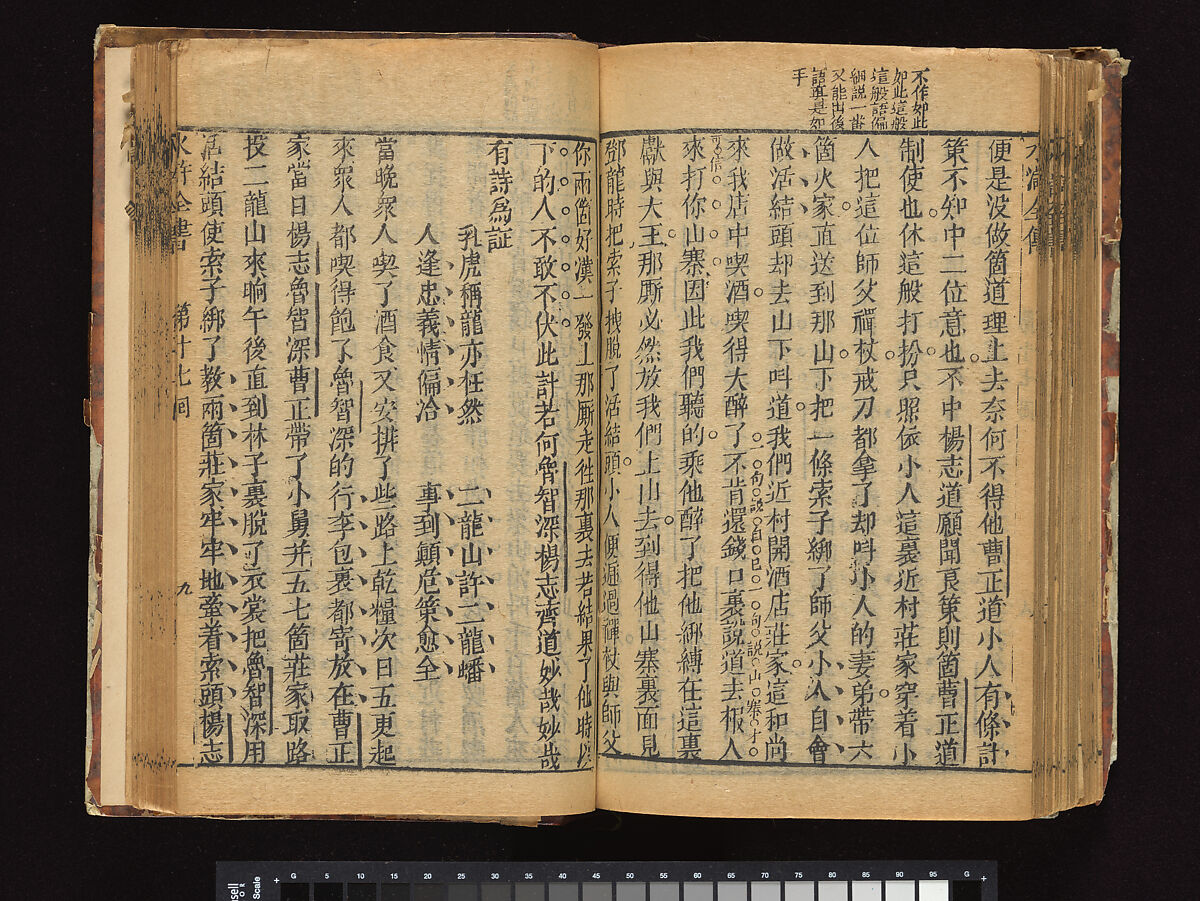 不作如此
如此這般
這般語偏
細說一番
又能出後
語真是如
手
便是没做箇道理上去奈何不得他曹正道小人有條計
策不知中二位意也不中楊志道願聞良策則箇曹正道
制使也休這般打扮只照依小人這裏近村莊家穿着小
人把這位師父禪杖戒刀都拿了却呌小人的妻弟帶六
箇火家直送到那山下把一條索子綁了師父小人自會
做活結頭却去山下呌道我們近村開酒店莊家這和尚
來我店中喫酒喫得大醉了不肯還錢口裏說道去报人
一句說自己一句說山寨
來打你山寨因此我們聽的乘他醉了把他綁縛在這裏
獻與大王那厮必然放我們上山去到得他山寨裏面見
鄧龍時把索子拽脫了活結頭小人便遞過禪杖與師父
你兩箇好漢一發上那厮走往那裏去若結果了他時
下的人不敢不伏此計若何魯智深楊志齊道妙哉妙哉
有詩爲証
乳虎稱龍亦枉然 二龍山許二龍蟠
人逢忠義情偏洽 事到顛危策愈全
當晚衆人喫了酒食又安排了些路上乾糧次日五更起
來衆人都喫得飽了魯智深的行李包裹都寄放在曹正
家當日楊志魯智深曹正帶了小舅并五七箇莊家取路
投二龍山來晌午後直到林子裏脫了衣裳把魯智深用
活結頭使索子綁了教兩箇莊家牢牢地牽着索頭楊志
水滸全書 第十七回 九